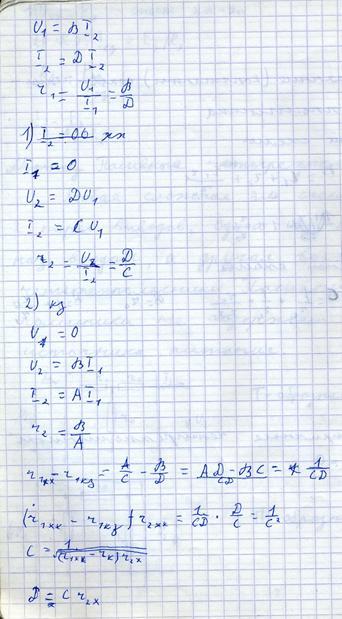 U₁ = B I₂
I₂ = D I₂
r₁ = U₁/I₁ = B/D
1) I₂ = 0 xx
I₁ = 0
U₂ = DU₁
I₂ = CU₁
r₂ = U₂/I₂ = D/C
2) кз
U₁ = 0
U₂ = BI₁
I₂ = AI₁
r₂ = B/A
r₁xx − r₁кз = A/C − B/D = (AD − BC)/CD = 1/CD
(r₁xx − r₁кз) r₂xx = 1/CD · D/C = 1/C²
C = 1/√((r₁xx − rк) r₂x)
D = C r₂x